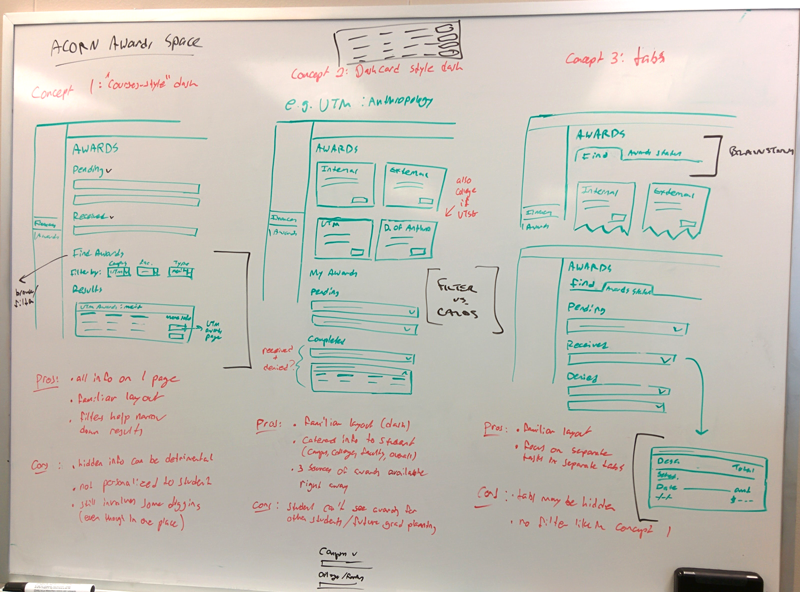 ACORN Awards Space
Concept 1: "Courses-style" dash
AWARDS
Pending
Received
Finances
Awards
Find Awards
Filter by:
Campus
UTM
Fac.
Type
merit
Results
UTM Award: merit
More info
UTM awards page
Pros: • all info on 1 page
• familiar layout
• filters help narrow
down results
Cons: • hidden info can be detrimental
• not personalized to student
• still involves some digging
(even though in one place)
Concept 2: Dashcard style dash
e.g. UTM: Anthropology
AWARDS
Internal
External
UTM
D. of Anthro
also
college
if
UTSG
Finances
Awards
My Awards
Pending
Completed
received
+
denied?
FILTER
vs.
CARDS
Pros: • familiar layout (dash)
• catered info to student
(campus, college, faculty, overall)
• 3 sources of awards available
right away
Cons: • student can't see awards for
other students/future grad planning
Campus
College/Faculty
Concept 3: tabs
AWARDS
Find
Awards status
Internal
External
Finances
Awards
AWARDS
Find
Awards status
Pending
Received
Denied
Pros: • familiar layout
• focus on separate
tasks in separate tabs
Desc.
Total
Sched.
Date
amt
-/-/-
$---
Cons: • tabs may be hidden
• no filter like in concept 1